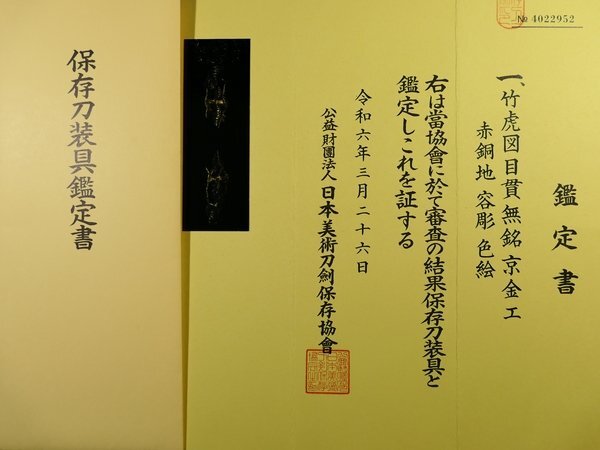 № 4022952
鑑定書
一、竹虎図目貫 無銘 京金工
赤銅地 容彫 色絵
右は當協會に於て審査の結果保存刀装具と
鑑定しこれを証する
令和六年三月二十六日
公益財團法人 日本美術刀劍保存協會
保存刀装具鑑定書